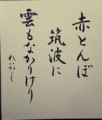 赤とんぼ
筑波に
雲もなかりけり